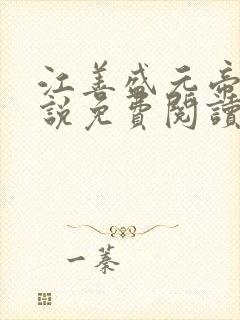 江善盛元帝
說免費閱讀
一蓁